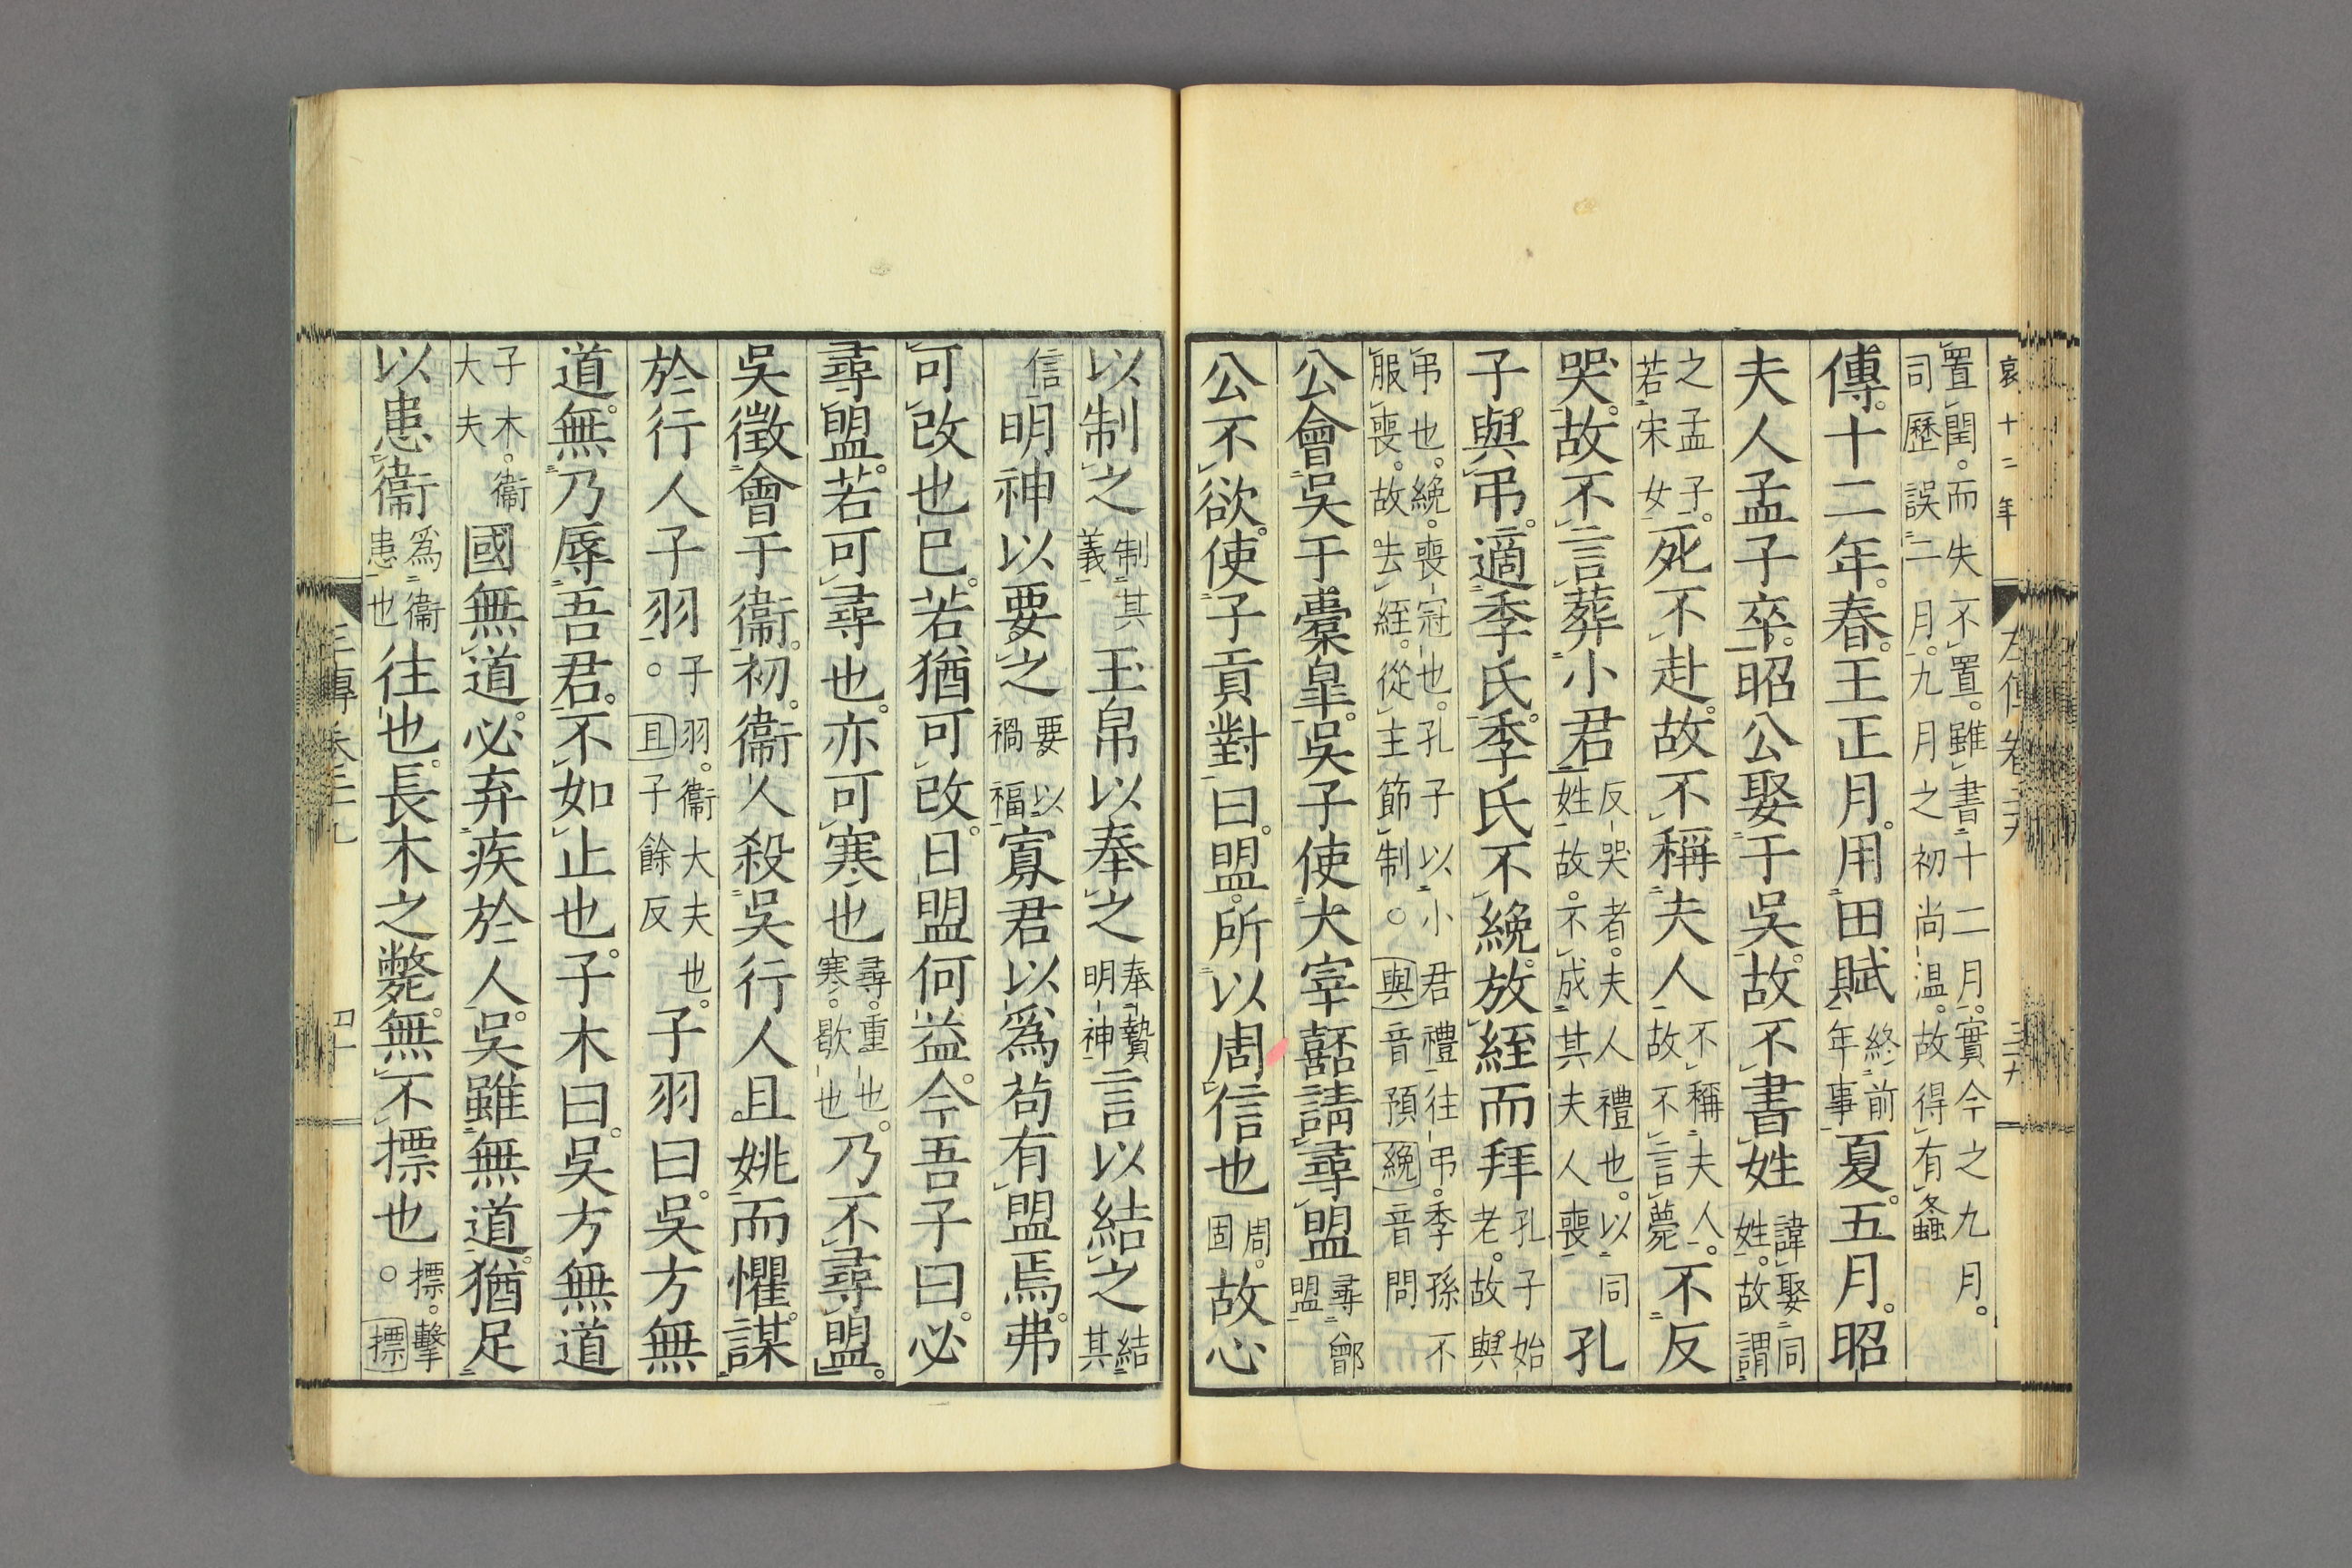 哀十二年
置閏。而失不置。雖書十二月。實今之九月。
司歷誤一月。九月之初尚温。故得有螽
傳。十二年。春。王正月。用田賦終前年事夏。五月。昭
夫人孟子卒。昭公娶于吳。故不書姓諱娶同姓。故謂
之孟子。若宋女死不赴。故不稱夫人不稱夫人。故不言薨。不反
哭。故不言葬小君反哭者。夫人禮也。以同姓故。不成其夫人喪孔
子與弔。適季氏。季氏不絻。放絰而拜孔子始老。故與
弔也。絻。喪冠也。孔子以小君禮往弔。季孫不
服喪。故去絰。從主節制。○與音預絻音問
公會吳于橐皋。吳子使大宰嚭請尋盟尋鄫盟
公不欲。使子貢對曰。盟。所以周信也周。固故心
以制之制其義玉帛以奉之奉贄明神言以結之結其
信明神以要之要以禍福寡君以爲苟有盟焉。弗
可改也已。若猶可改。日盟何益。今吾子曰。必
尋盟。若可尋也。亦可寒也尋。重也。寒。歇也乃不尋盟。
吳徵會于衞。初。衞人殺吳行人且姚而懼。謀
於行人子羽子羽。衞大夫也。○且子餘反子羽曰。吳方無
道。無乃辱吾君。不如止也。子木曰。吳方無道
子木。衞大夫國無道。必弃疾於人。吳雖無道。猶足
以患衞爲衞患也往也。長木之斃。無不摽也摽。擊○摽